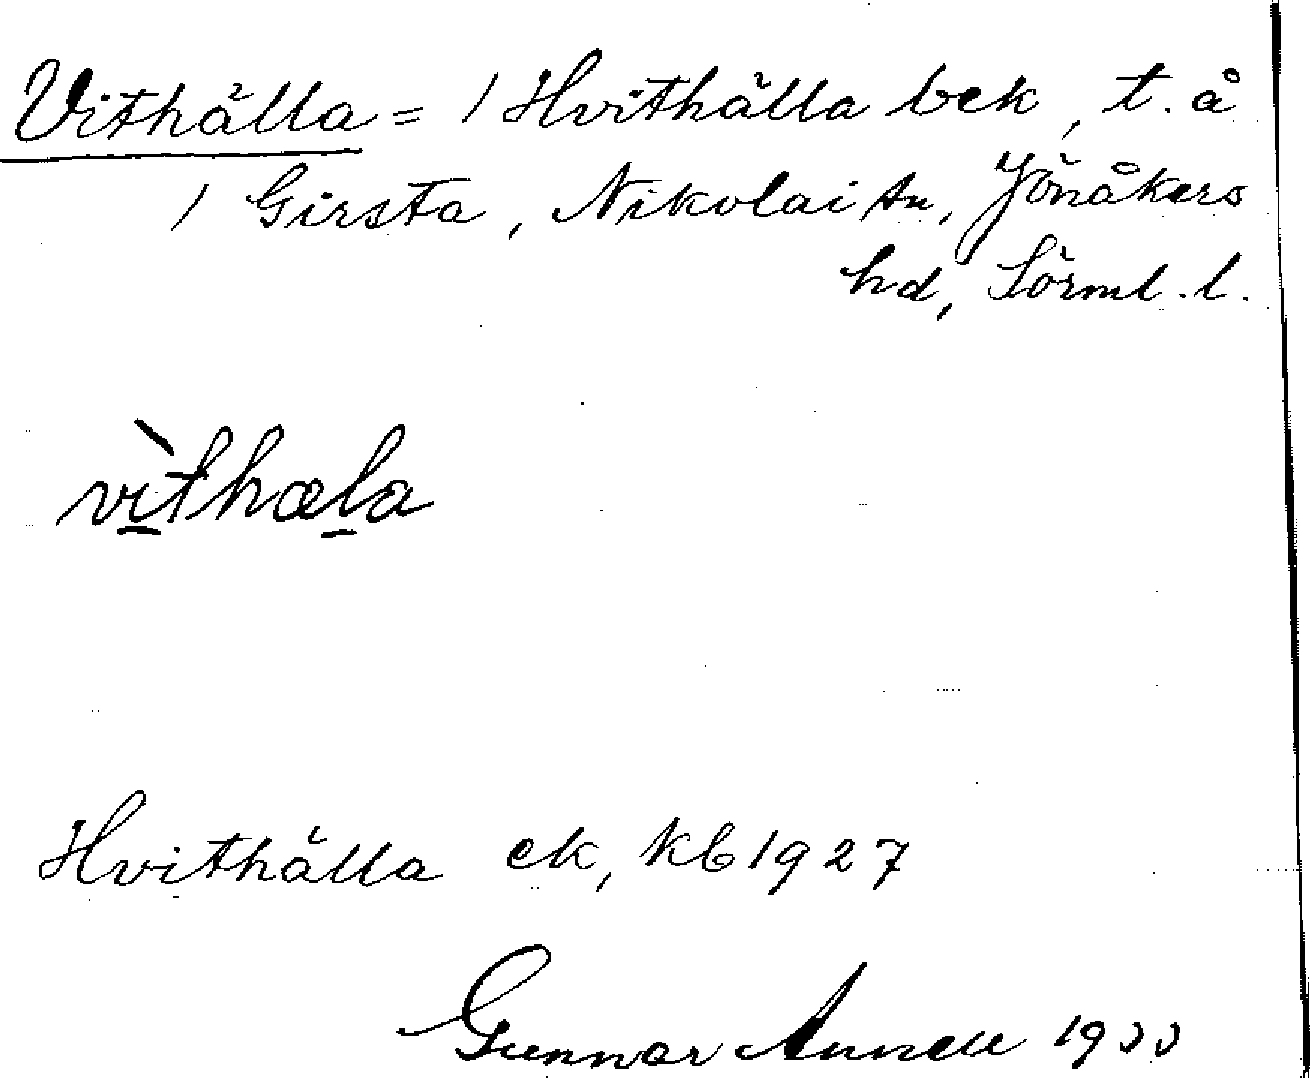 Vithälla = / Hvithälla bek, t. å
/ Girsta, Nikolai sn, Jönåkers
hd, Sörml. l.
vìthæla
Hvithälla ek, kb 1927
Gunnar Annell 1933